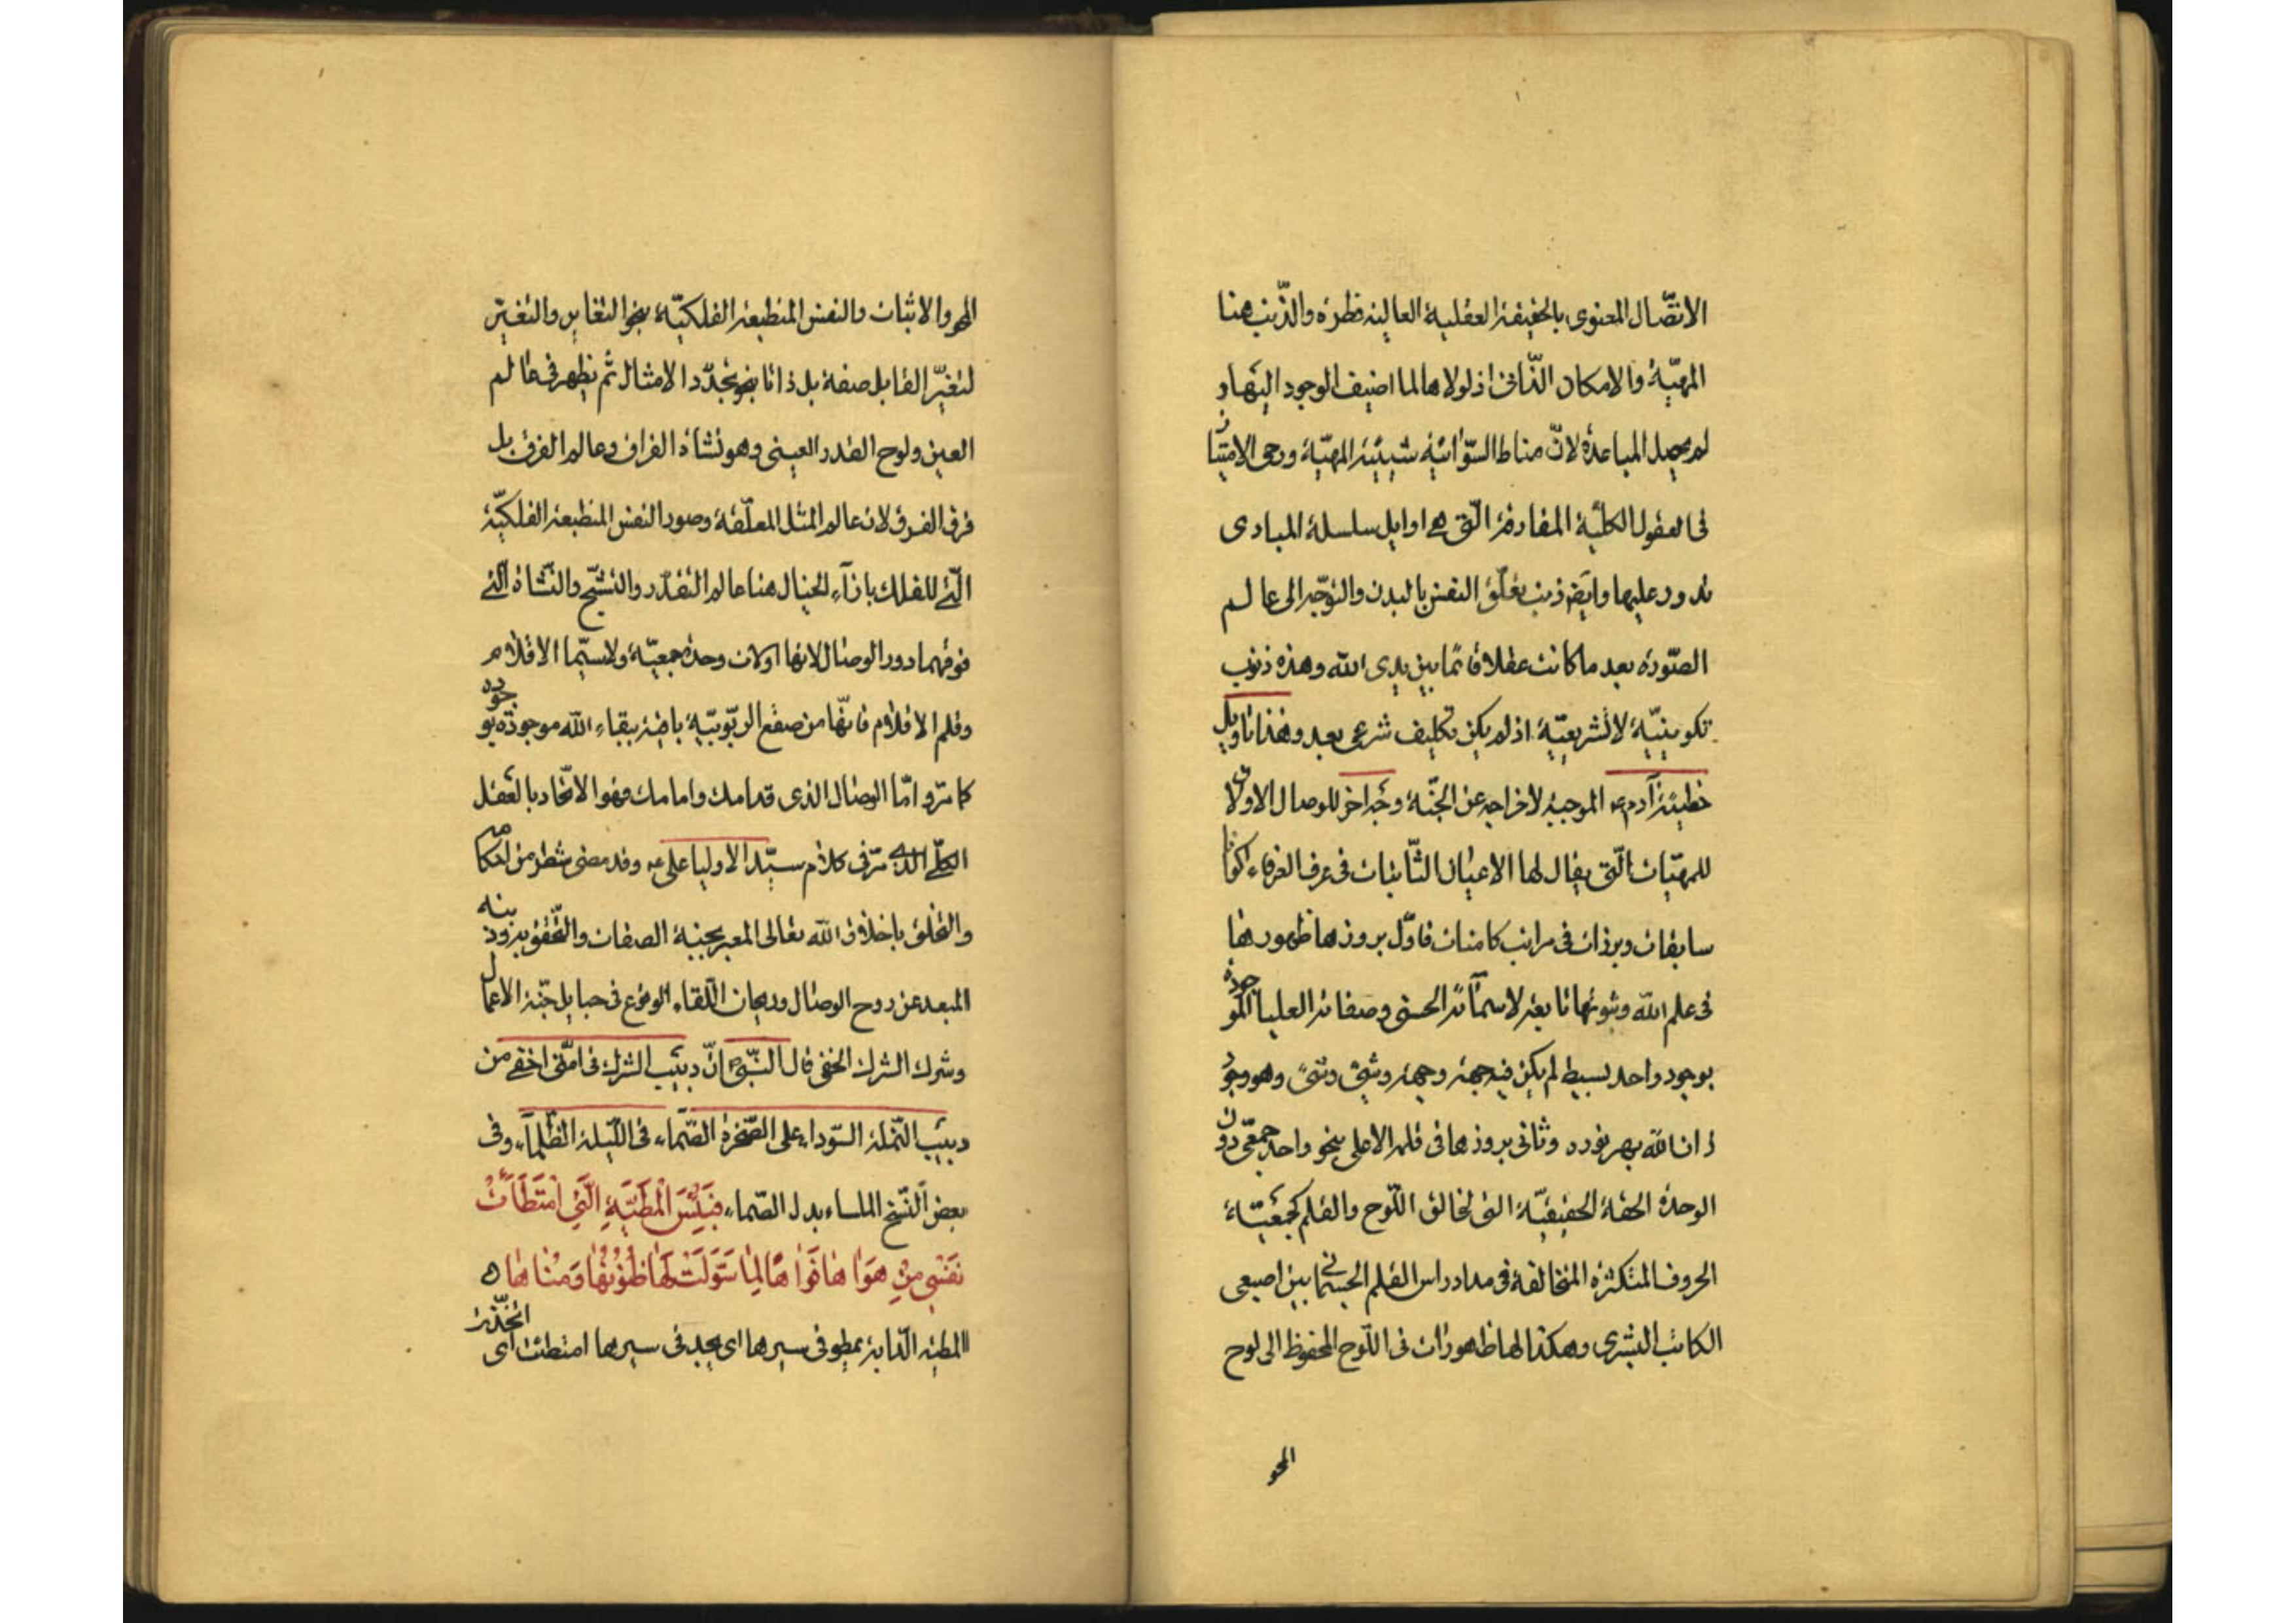 الاتّصال المعنوى بالحقيقة العقلية العالية فطرة والذّنب هنا
المهيّة والامكان الذّاتى اذ لولاها لما اضيف الوجود اليها و
لم يحصل المباعدة لانّ مناط السّوائية شيئية المهيّة ورحى الامتياز
فى العقول الكلّية المفارقة الّتى هى اوايل سلسلة المبادى
تدور عليها وايضا ذنب تعلّق النفس بالبدن والتوجّه الى عالم
الصّورة بعد ما كانت عقلا قائما بين يدى الله وهذه ذنوب
تكوينيّة لا تشريعيّة اذ لم يكن تكليف شرعى بعد وهذا تاويل
خطيئة آدم ع الموجبة لاخراجه عن الجنّة وجه اخر للوصال الاول ان
للمهيّات الّتى يقال لها الاعيان الثّابتات فى عرف العرفاء اكوانا
سابقات وبرزات فى مراتب كامنات فاوّل بروزها ظهورها
فى علم الله وثبوتها تابعة لاسمآئه الحسنى وصفاته العليا الموجودة
بوجود واحد بسيط لم يكن فيه جهة وجهة وشئ وشئ وهو وجود
ذات الله بهر نوره وثانى بروزها فى قلمه الاعلى بنحو واحد جمعى دون
الوحدة الحقة الحقيقيّة التى لخالق اللّوح والقلم كجمعيّة
الحروف المتكثرة المتخالفة فى مداد راس القلم الجسمانى بين اصبعى
الكاتب البشرى وهكذا لها ظهورات فى اللّوح المحفوظ الى لوح
المحو
المحو والاثبات والنفس المنطبعة الفلكيّة بنحو التغاير والتغيّر
لتغيّر القابل صفة بل ذاتا بنحو تجدّد الامثال ثم يظهر فى عالم
العين ولوح القدر العينى وهو نشاة الفراق وعالم الفرق بل
فرق الفرق لان عالم المثل المعلّقة وصور النفس المنطبعة الفلكيّة
الّتى للفلك بازآء الخيال هنا عالم التقدّر والتشبّح والنّشاة الّتى
فوقهما دور الوصال لانها اولات وحدة جمعيّة ولاسيّما الاقلام
وقلم الاقلام فانّها من صقع الربّوبيّة باقية ببقاء الله موجودة بوجوده
كما مرّ وامّا الوصال الذى قدامك وامامك فهو الاتّحاد بالعقل
الكلّى الذى مرّ فى كلام سيّد الاولياء على ع وقد مضى شطر من احكامه
والتخلق باخلاق الله تعالى المعبر بجنة الصفات والتّحقق بذنوبه
المبعد عن روح الوصال وريحان اللّقاء الوقوع فى حبايل جنّة الاعمال
وشرك الشرك الخفى قال النّبىّ ص انّ دبيب الشرك فى امّتى اخفى من
دبيب النّملة السّوداء على الصّخرة الصّماء فى اللّيلة الظّلمآء وفى
بعض النّسخ الملساء بدل الصّماء فَبِئْسَ الْمَطِيَّةِ الَّتِى امْتَطَأَتْ
نَفْسِى مِنْ هَوَاهَا فَوَاهًا لِمَا سَوَّلَتْ لَهَا ظُنُونُهَا وَمُنَاهَا
المطيّة الدّابة تمطو فى سيرها اى يجد فى سيرها امتطئت اى اتخذت